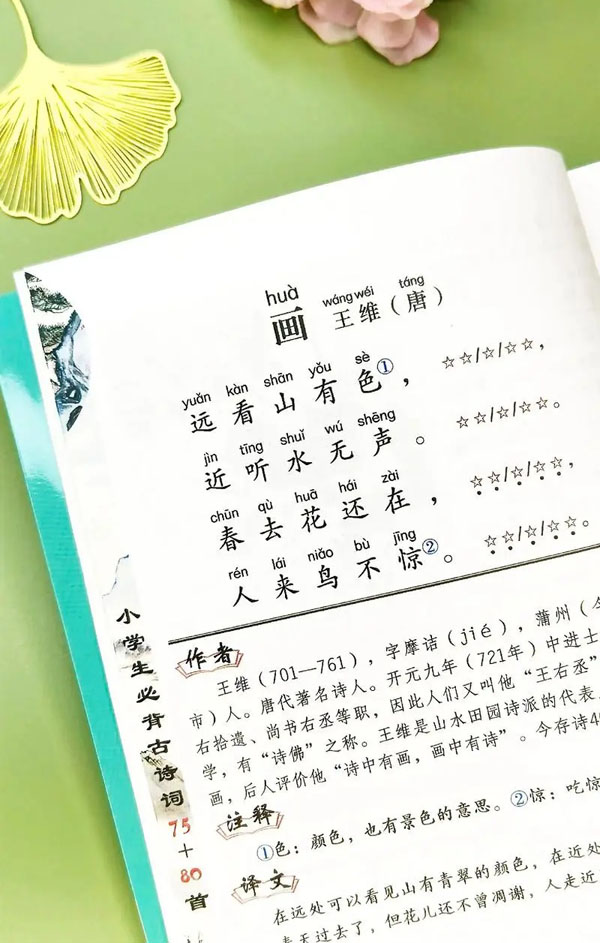 huà
画
wáng wéi táng
王维（唐）
yuǎn kàn shān yǒu sè
远看山有色①，
☆☆/☆/☆☆，
jìn tīng shuǐ wú shēng
近听水无声。
☆☆/☆/☆☆。
chūn qù huā hái zài
春去花还在，
☆☆/☆/☆☆，
rén lái niǎo bù jīng
人来鸟不惊②。
☆☆/☆/☆☆。
作者
王维（701—761），字摩诘（jié），蒲州（今
市）人。唐代著名诗人。开元九年（721年）中进士
右拾遗、尚书右丞等职，因此人们又叫他“王右丞”
学，有“诗佛”之称。王维是山水田园诗派的代表
画，后人评价他“诗中有画，画中有诗”。今存诗4
注释
①色：颜色，也有景色的意思。②惊：吃惊
译文
在远处可以看见山有青翠的颜色，在近处
春天过去了，但花儿还不曾凋谢，人走近
小学生必背古诗词75+80首